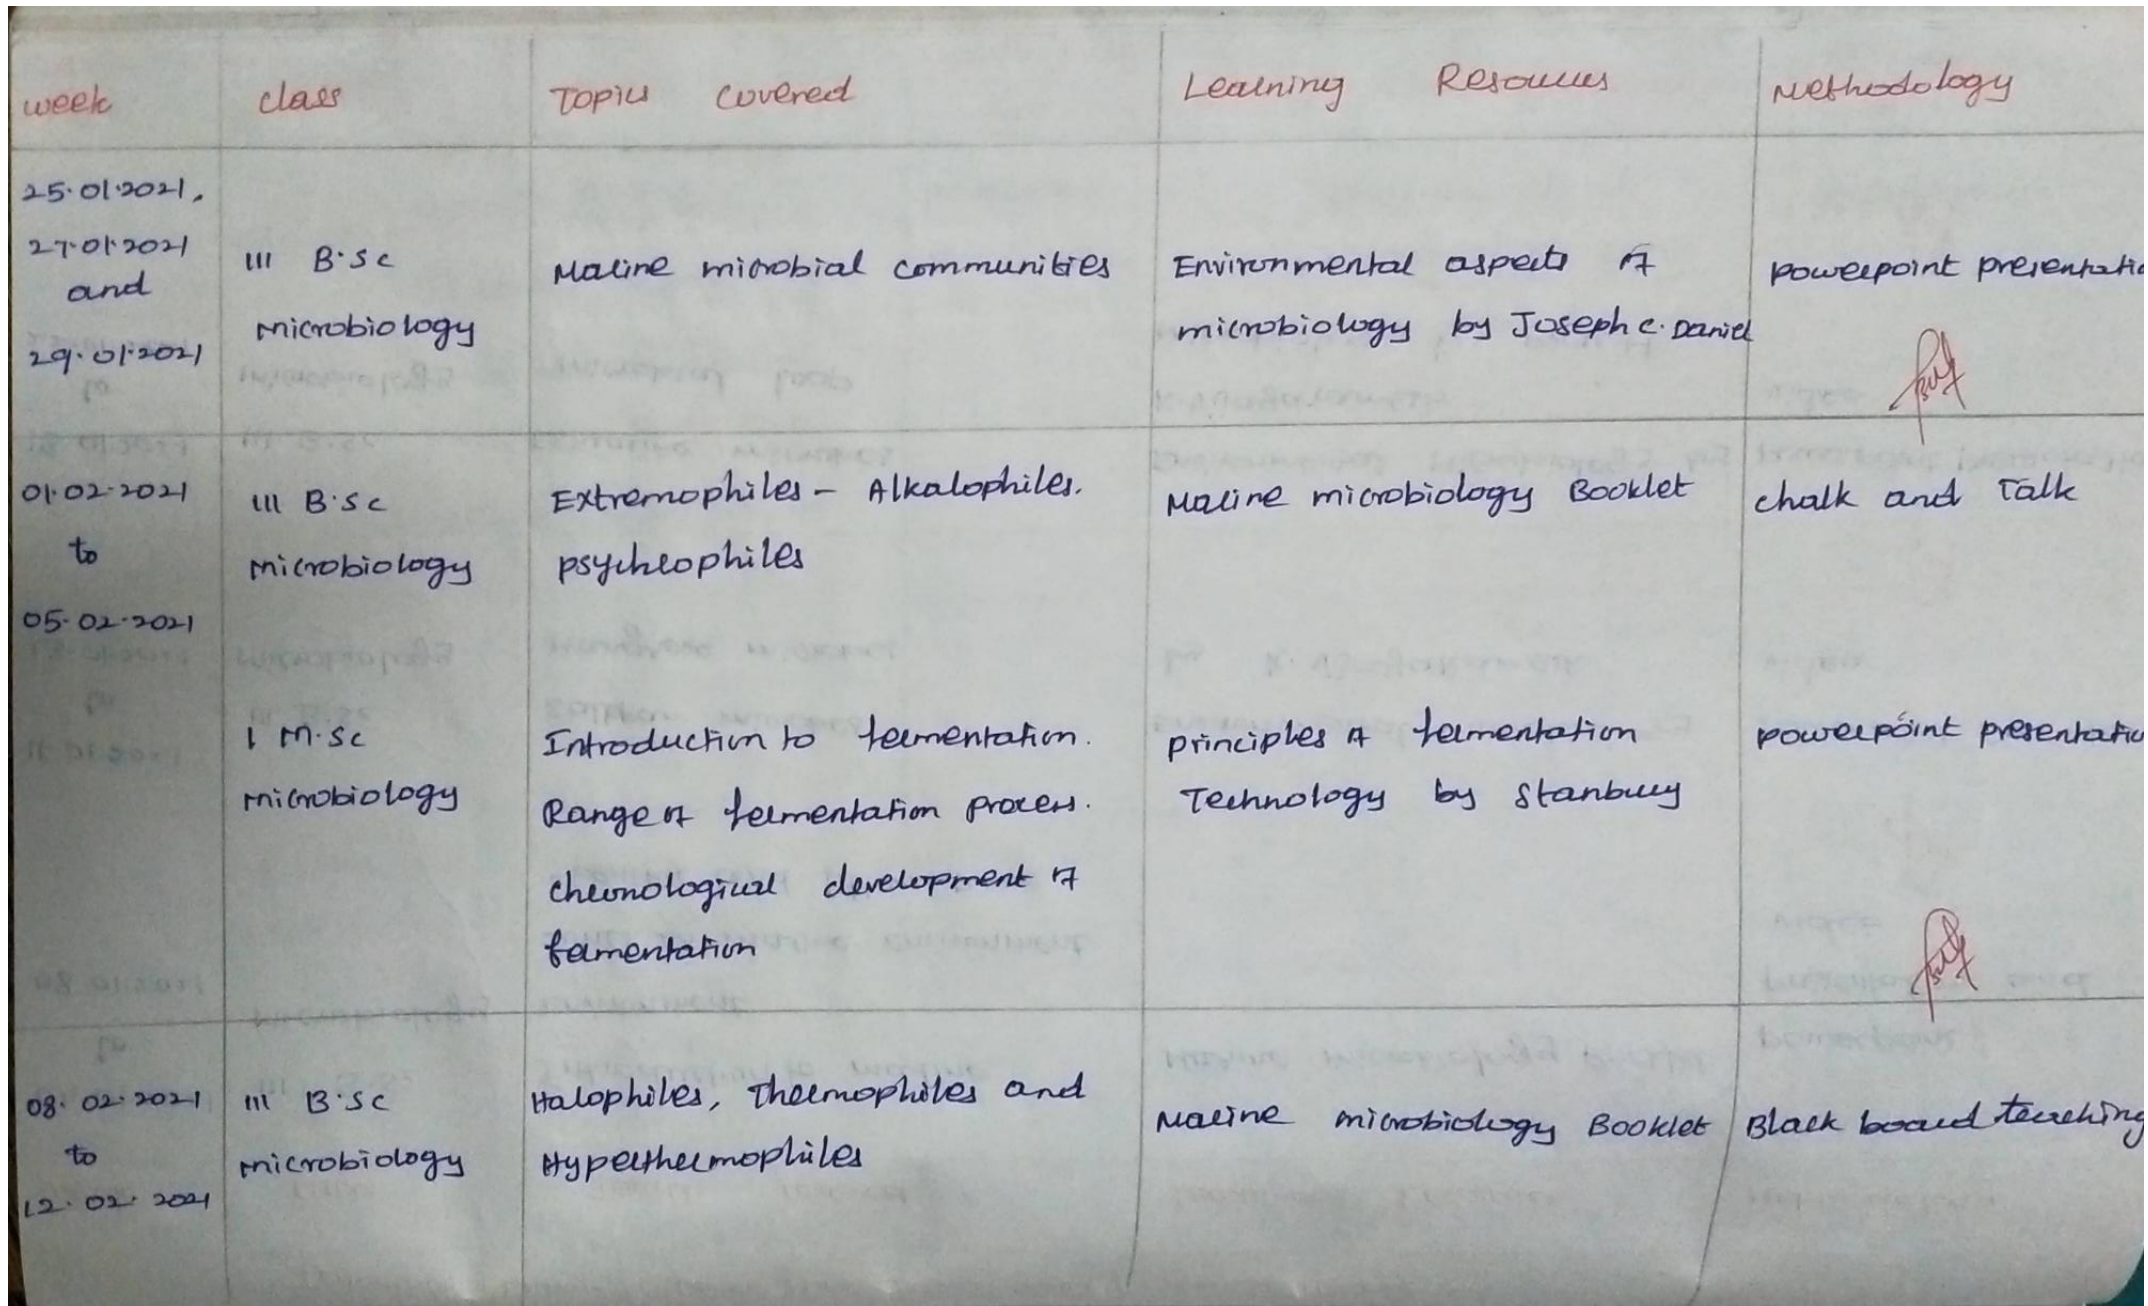 week class Topics covered Learning Resources Methodology
25.01.2021,
27.01.2021
and
29.01.2021
III B.Sc
microbiology
Marine microbial communities
Environmental aspects of
microbiology by Joseph C. Daniel
powerpoint presentatio
01.02.2021
to
05.02.2021
III B.Sc
microbiology
Extremophiles - Alkalophiles.
psychrophiles
Marine microbiology Booklet
chalk and Talk
I M.Sc
microbiology
Introduction to fermentation.
Range of fermentation process.
chronological development of
fermentation
principles of fermentation
Technology by Stanbury
powerpoint presentatio
08.02.2021
to
12.02.2021
III B.Sc
microbiology
Halophiles, Thermophiles and
Hyperthermophiles
Marine microbiology Booklet
Black board teaching